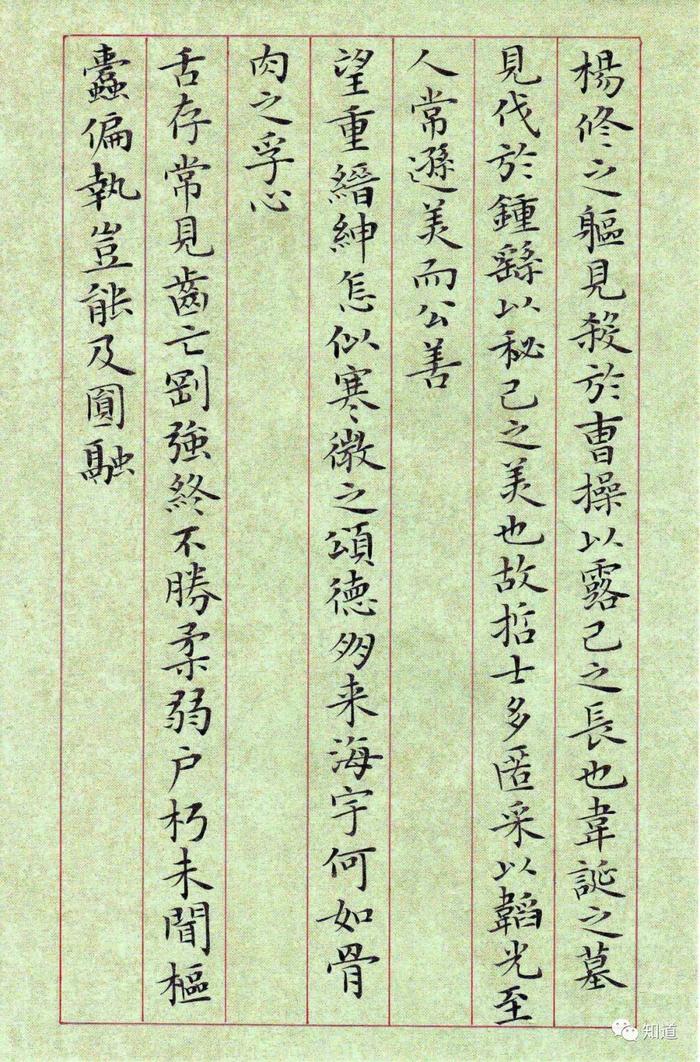 楊修之軀見殺於曹操以露己之長也韋誕之墓
見伐於鍾繇以秘己之美也故哲士多匿采以韜光至
人常遜美而公善
望重縉紳怎似寒微之頌德朋来海宇何如骨
肉之孚心
舌存常見齒亡剛強終不勝柔弱户朽未聞樞
蠹偏執豈能及圓融
知道